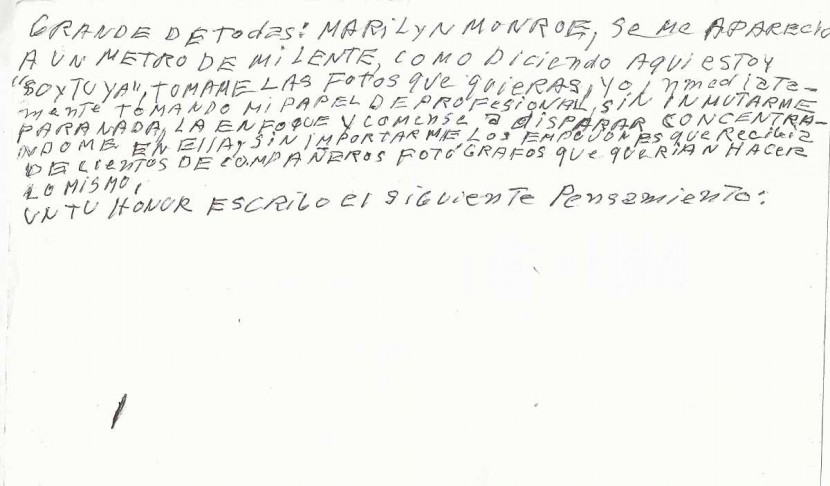 GRANDE DE TODAS: MARILYN MONROE, SE ME APARECIO
A UN METRO DE MI LENTE, COMO DICIENDO AQUI ESTOY
"SOY TUYA", TOMAME LAS FOTOS QUE QUIERAS, YO INMEDIATA-
MENTE TOMANDO MI PAPEL DE PROFESIONAL, SIN INMUTARME
PARA NADA, LA ENFOQUE Y COMENSE A DISPARAR CONCENTRA-
NDOME EN ELLA Y SIN IMPORTARME LOS EMPOJONES QUE RECIBIA
DE CIENTOS DE COMPAÑEROS FOTÓGRAFOS QUE QUERIAN HACER
LO MISMO,
UN TU HONOR ESCRIBO EL SIGUIENTE PENSAMIENTO: